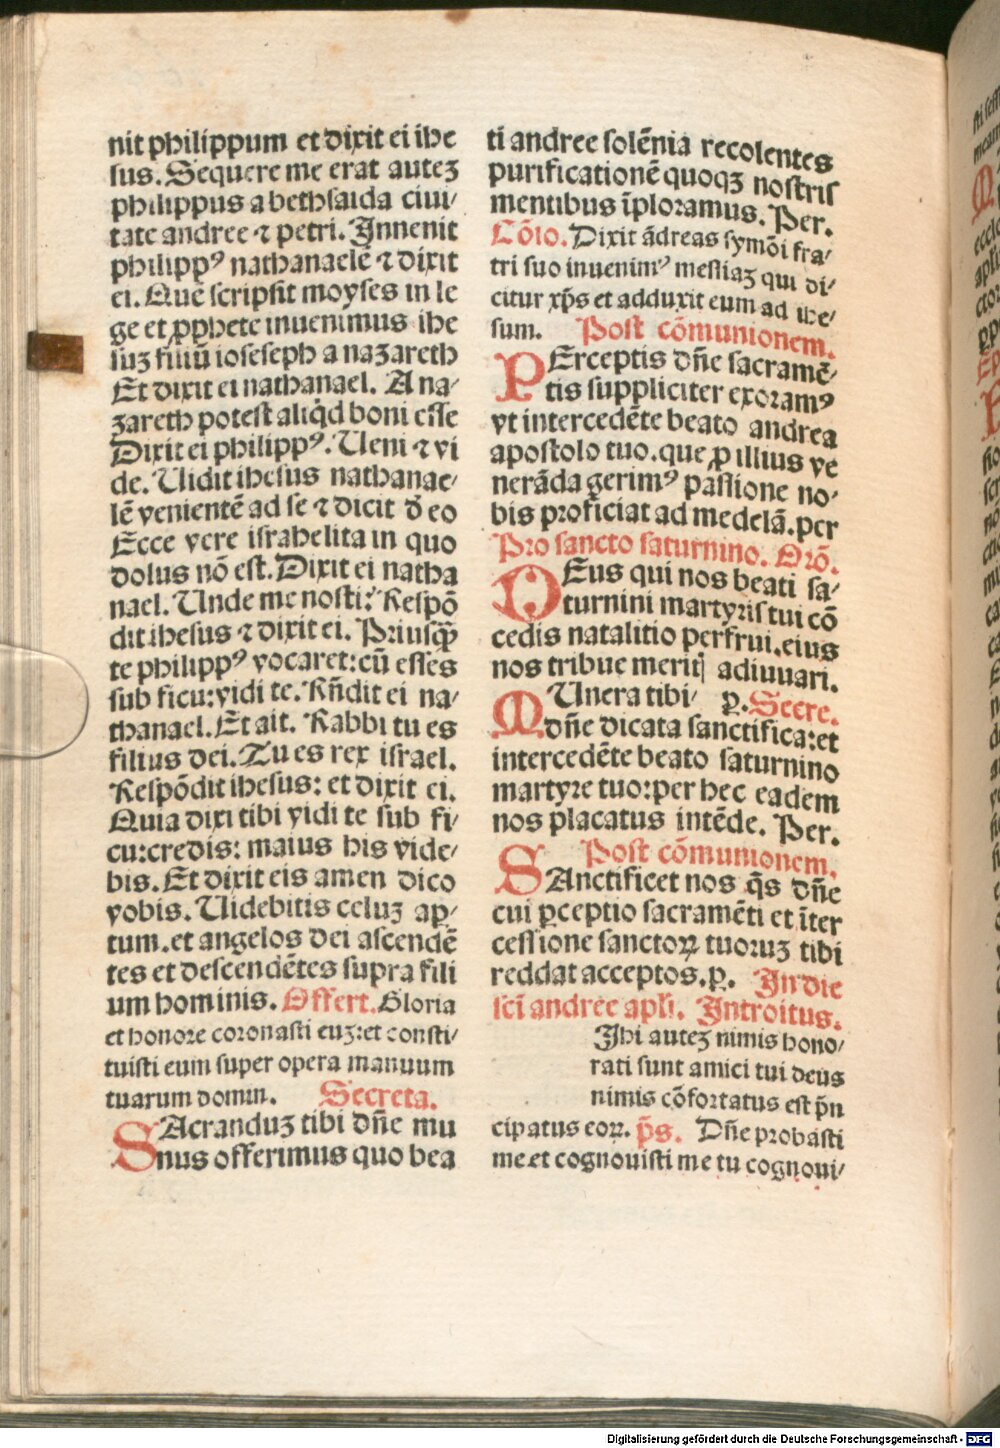 nit philippum et dixit ei ihe
sus. Sequere me erat auteʒ
philippus a bethsaida ciui/
tate andree ⁊ petri. Innenit
philippꝰ nathanaelē ⁊ dixit
ei. Quē scripsit moyses in le
ge et ꝓphete inuenimus ihe
suʒ filiū ioseseph a naʒareth
Et dixit ei nathanael. A na/
ʒareth potest aliq̇d boni esse
Dixit ei philippꝰ. Ueni ⁊ vi
de. Uidit ihesus nathanae/
lē venientē ad se ⁊ dicit ð eo
Ecce vere israhelita in quo
dolus nō est. Dixit ei natha
nael. Unde me nosti? Respō
dit ihesus ⁊ dixit ei. Priusꝙ̄
te philippꝰ vocaret: cū esses
sub ficu: vidi te. Rñdit ei na/
thanael. Et ait. Rabbi tu es
filius dei. Tu es rex israel.
Respōdit ihesus: et dixit ei.
Quia dixi tibi vidi te sub fi/
cu: credis: maius his vide/
bis. Et dixit eis amen dico
vobis. Uidebitis celuʒ aꝑ/
tum. et angelos dei ascendē
tes et descendētes supra fili
um hominis. Offert. Gloria
et honore coronasti euʒ: et consti/
tuisti eum super opera manuum
tuarum domin. Secreta.
SAcranduʒ tibi dñe mu
nus offerimus quo bea
ti andree solēnia recolentes
purificationē quoqʒ nostris
mentibus īploramus. Per.
Cōio. Dixit ādreas symōi fra/
tri suo inuenimꝰ messiaʒ qui di/
citur xp̄s et adduxit eum ad ihe/
sum. Post cōmunionem.
PErceptis dñe sacramē/
tis suppliciter exoramꝰ
vt intercedēte beato andrea
apostolo tuo. que ꝓ illius ve
nerāda gerimꝰ passione no/
bis proficiat ad medelā. per
Pro sancto saturnino. Orō.
DEus qui nos beati sa/
turnini martyris tui cō
cedis natalitio perfrui. eius
nos tribue meritj adiuuari.
MUnera tibi/ ꝑ. Secre.
dñe dicata sanctifica: et
intercedēte beato saturnino
martyre tuo: per hec eadem
nos placatus intēde. Per.
Post cōmunionem.
SAnctificet nos q̄s dñe
cui ꝑceptio sacramēti et īter
cessione sanctoꝝ tuoruʒ tibi
reddat acceptos. ꝑ. In die
scī andree apłi. Introitus.
Ihi auteʒ nimis hono/
rati sunt amici tui deus
nimis cōfortatus est p̄n
cipatus eoꝝ. p̄s. Dñe probasti
me et cognouisti me tu cognoui/
Digitalisierung gefördert durch die Deutsche Forschungsgemeinschaft - DFG